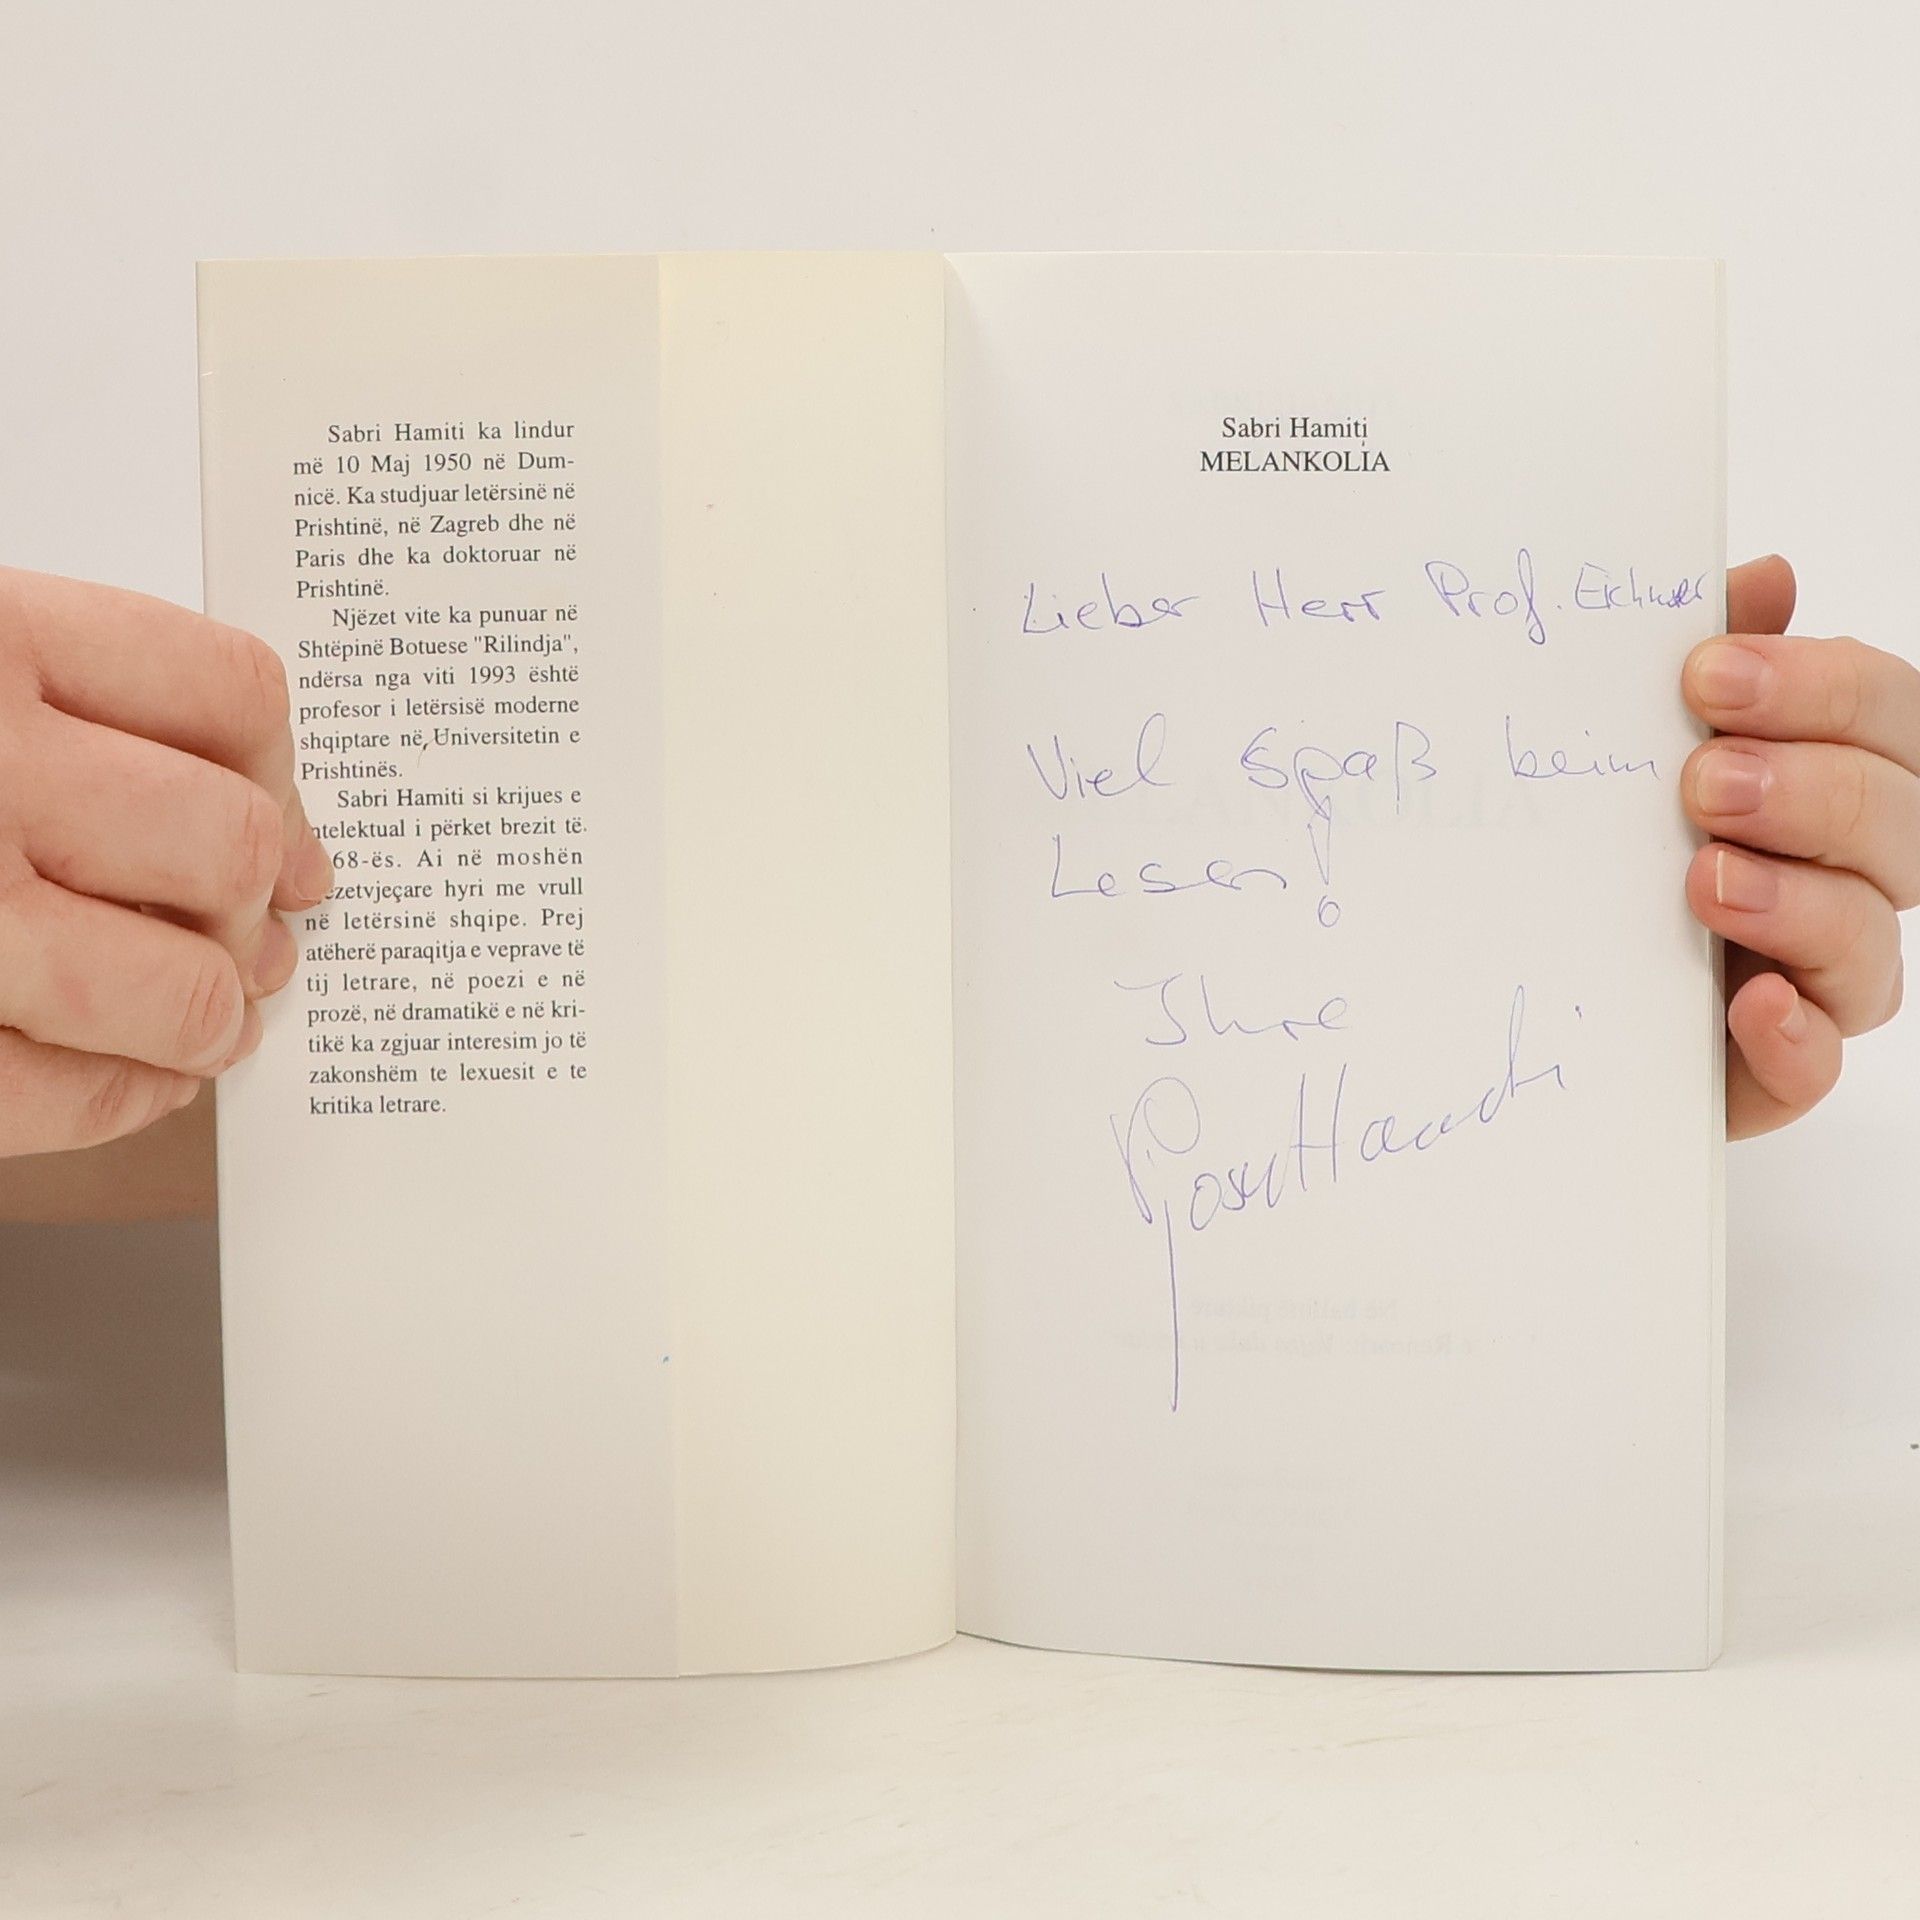 Sabri Hamiti ka lindur
më 10 Maj 1950 në Dum-
nicë. Ka studjuar letërsinë në
Prishtinë, në Zagreb dhe në
Paris dhe ka doktoruar në
Prishtinë.
Njëzet vite ka punuar në
Shtëpinë Botuese "Rilindja",
ndërsa nga viti 1993 është
profesor i letërsisë moderne
shqiptare në Universitetin e
Prishtinës.
Sabri Hamiti si krijues e
ntelektual i përket brezit të
68-ës. Ai në moshën
ezetvjeçare hyri me vrull
në letërsinë shqipe. Prej
atëherë paraqitja e veprave të
tij letrare, në poezi e në
prozë, në dramatikë e në kri-
tikë ka zgjuar interesim jo të
zakonshëm te lexuesit e te
kritika letrare.
Sabri Hamiti
MELANKOLIA
Lieber Herr Prof. Eichner
Viel Spaß beim
Lesen!
Ihre